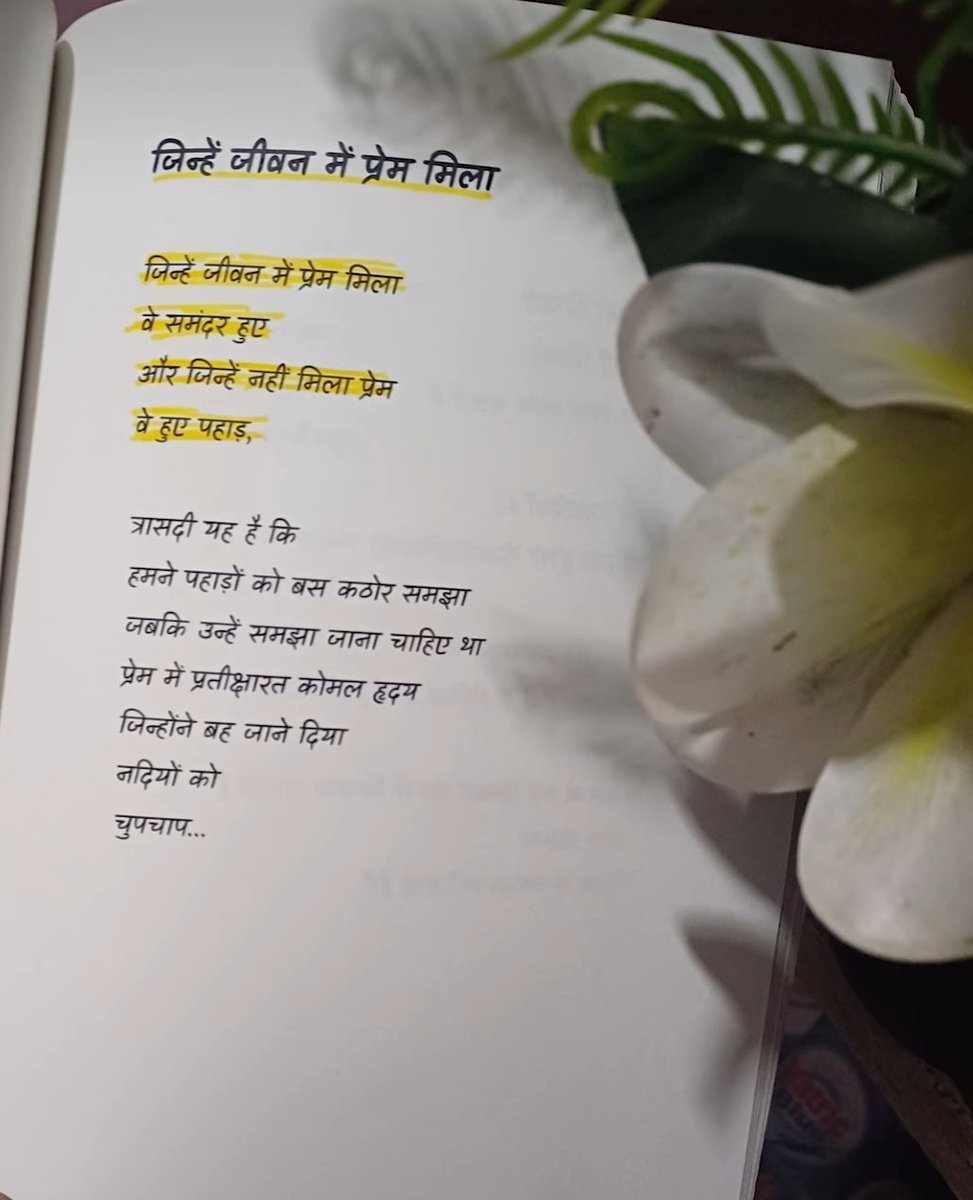 जिन्हें जीवन में प्रेम मिला
जिन्हें जीवन में प्रेम मिला
वे समंदर हुए
और जिन्हें नहीं मिला प्रेम
वे हुए पहाड़,
त्रासदी यह है कि
हमने पहाड़ों को बस कठोर समझा
जबकि उन्हें समझा जाना चाहिए था
प्रेम में प्रतीक्षारत कोमल हृदय
जिन्होंने बह जाने दिया
नदियों को
चुपचाप...